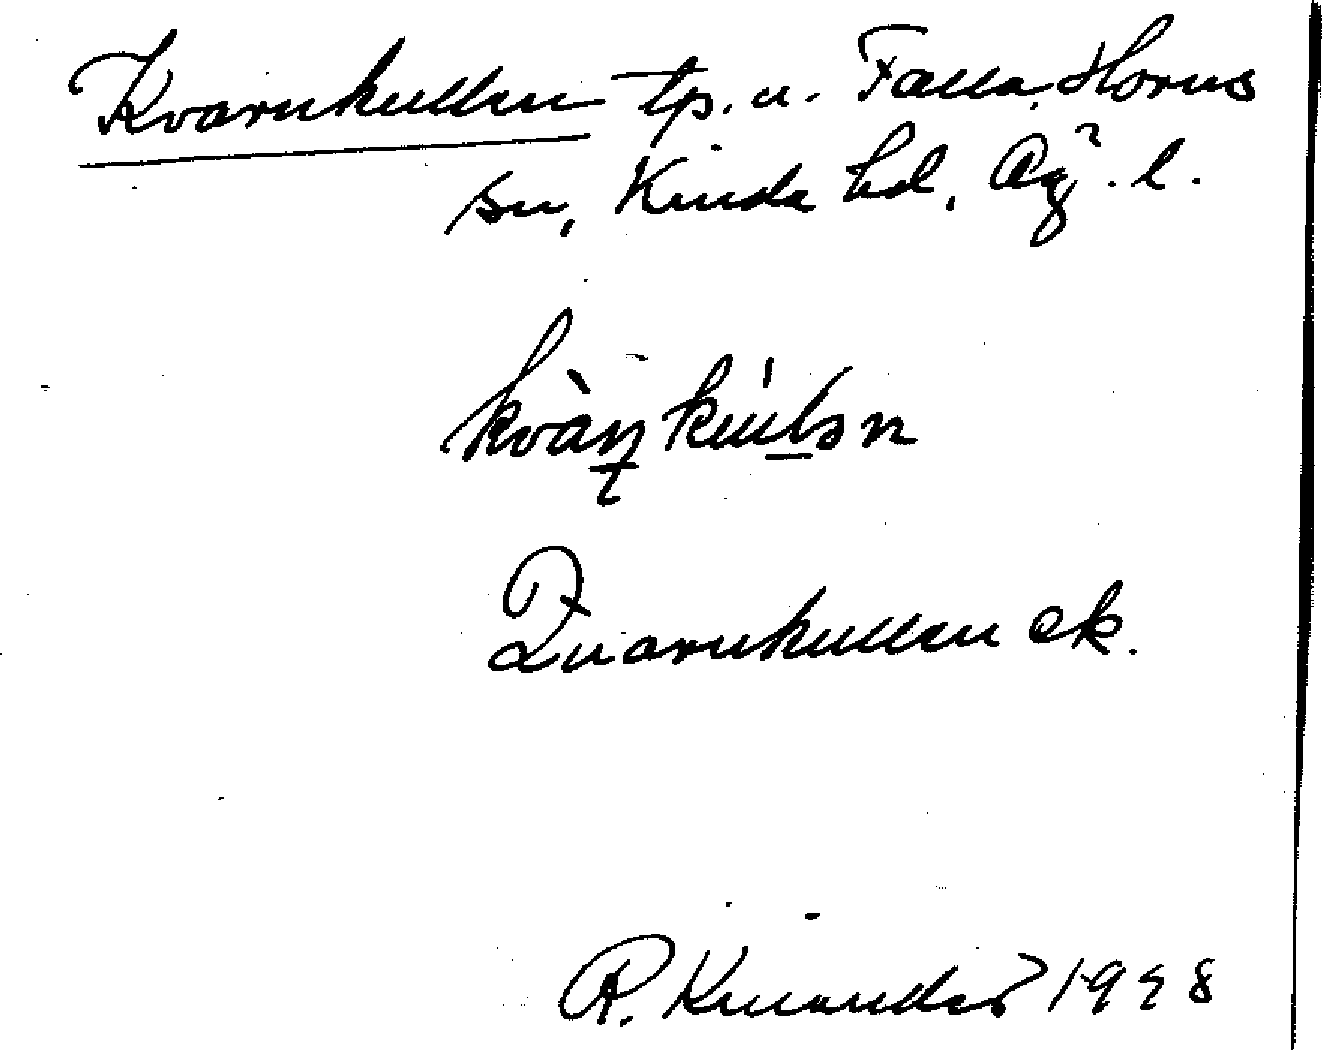 Kvarnkullen tp. u. Falla, Horns
sn, Kinda hd, Ög. l.
kvàṇkúlən
Quarnkullen ek.
R. Kinander 1948